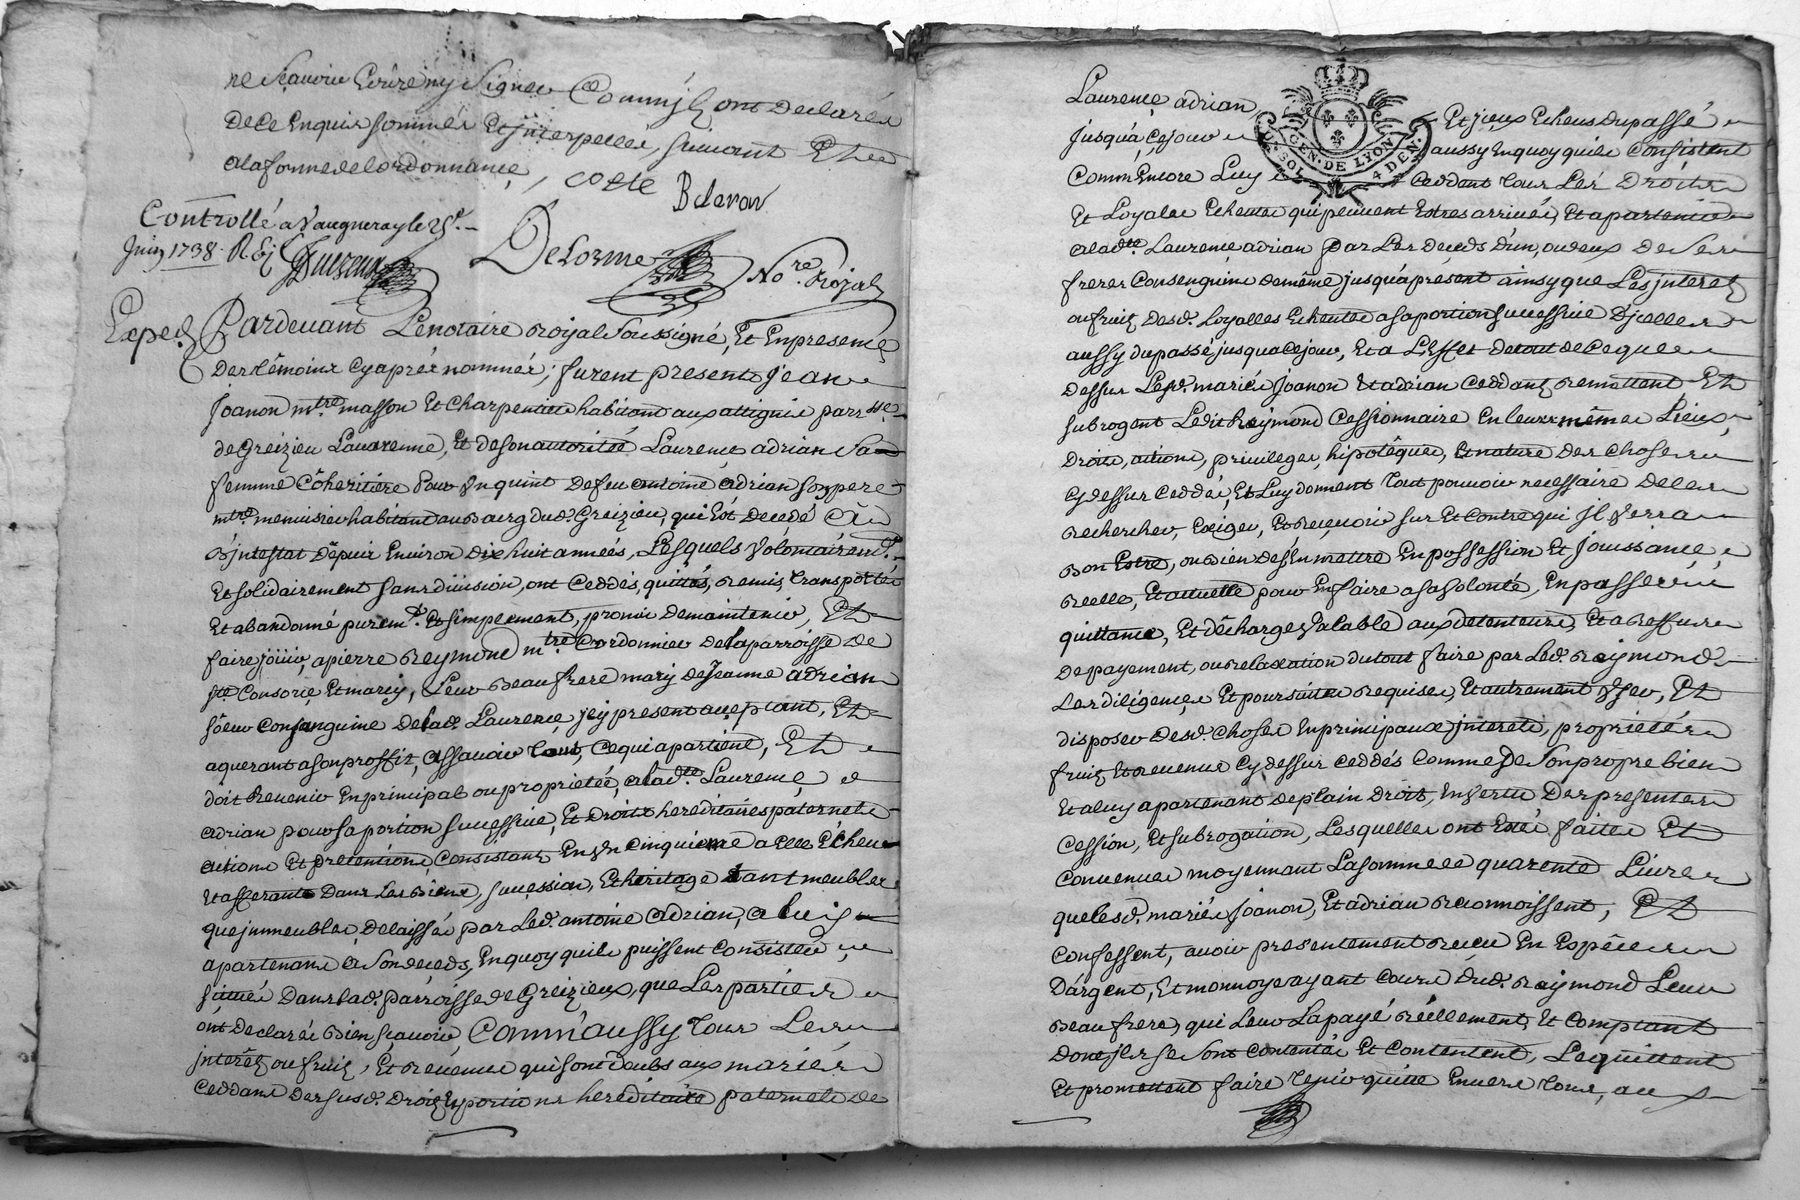 ne scavoir Ecrire ny signer Comm'jls ont declarés
de ce Enquis sommés Et jnterpellés, suivant Et
a la forme de l'ordonnance, coste
Controllé a Vaugneray le 25e.
Juin 1738. R.
Delorme Nore. Royal
Exped. Pardevant Le notaire Royal soussigné, Et En presence
des têmoins Cy aprés nommés; furent presents Jean
Joanon mtre. masson Et Charpentier habitant aux attignies parrsse.
de Greizieu Lavarenne, Et de son autorité Laurence adrian sa
femme Côheritière Pour Un quint de feu antoine adrian son pere
mtre. menuisier habitant au Bourg dud. Greizieu, qui Est Decedé
ab jntestat Dêpuis Environ dix huit années, Lesquels Volontairemt.
Et solidairement sans division, ont Ceddés, quittés, remis, transportés
Et abandonné puremt. Et simplement, promis de maintenir, Et
faire joüir, a pierre Reymond mtre. Cordonnier de la parroisse de
ste. Consorce Et marcy, Leur Beau frere mary de Jeanne adrian
sôeur Consanguine de lad. Laurence jcy present acceptant, Et
aquerant a son proffit, assavoir tout, ce qui apartient, Et
doit Revenir En principal ou proprieté, a lad.te Laurence
adrian pour sa portion successive, Et Droits hereditaires paternels
actions Et pretentions, Consistant En Un cinquieme a elle Echeu
Et afferante Dans Les Biens, succession, Et heritage tant meubles
que jmmeubles, delaissés par Led. antoine adrian, a luy
apartenans a son deceds, En quoy qu'ils puissent Consister,
situés Dans lad. parroisse de Greizieux, que Les parties
ont Declarées Bien sçavoir, Comm'aussy tous Les
jnterêts ou fruits, Et revenus qui sont deubs aux mariés
Ceddans des susd. Droits Et portions hereditaire paternels de
Laurence adrian Et jceux Echeus du passé
jusqu'a ce jour aussy En quoy qu'ils Consistent
GEN. DE LYON
4 DEN.
Comm'Encore Luy Ceddent tous Les Droits
Et Loyales Echeutes qui peuvent Estres arrivés, Et apartenir
a lad.te Laurence adrian par Les deceds d'un, ou deux de ses
freres Consenguins de même jusqu'a present ainsy que Les jnterets
ou fruits desd. Loyalles Echeutes a sa portion successive D'jcelles
aussy du passé jusqu'a ce jour, Et a L'Effet de tout de ce que
dessus Lesd. mariés Joanon Et adrian Ceddent remettent Et
subrogent Ledit Reymond Cessionnaire En leurs mêmes Lieux,
Droits, actions, privileges, hipotêques, Et nature des choses
cy dessus Ceddés, Et Luy donnent tout pouvoir necessaire de les
rechercher, Exiger, Et recevoir sur Et contre qui jl Verra
Bon Estre, ou Bien de s'En mettre En possession Et Jouissance
réelle, Et actuelle pour En faire a sa Volonté, En passer
quittance, Et décharge Valable aux detenteurs, Et a Reffus
de payement, ou relaxation du tout faire par Led. Raymond
Les diligences Et poursuites requises, Et autrement User, Et
disposer desd. choses En principaux jnterets, proprietés
fruits Et revenus cy dessus ceddés Comme de son propre bien
Et a luy apartenant de plain Droit, En Vertu des presentes
Cession, Et subrogation, Lesquelles ont Esté faites Et
Convenues moyennant La somme de quarente Livres
que lesd. mariés Joanon, Et adrian Reconnoissent, Et
Confessent, avoir presentement receu En Espêces
D'argent, Et monnoye ayant cours dud. Raymond Leur
Beau frere, qui Leur La payé réellement, Et Comptant
dont jls se sont Contentés Et Contentent, Le quittent
Et promettent faire tenir quitte Envers tous, aux